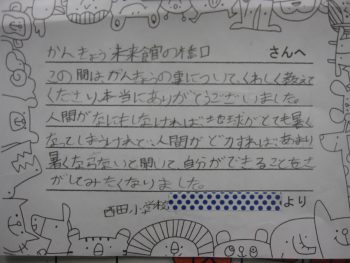 かんきょう未来館の橋口 さんへ
この間はかんきょうの事について、くわしく教えて
くださり本当にありがとうございました。
人間がなにもしなければ地球がとても暑く
なってしまうけれど、人間がどりょくすれば、あまり
暑くならないと聞いて、自分ができることをさ
がしてみたくなりました。
西田小学校 より